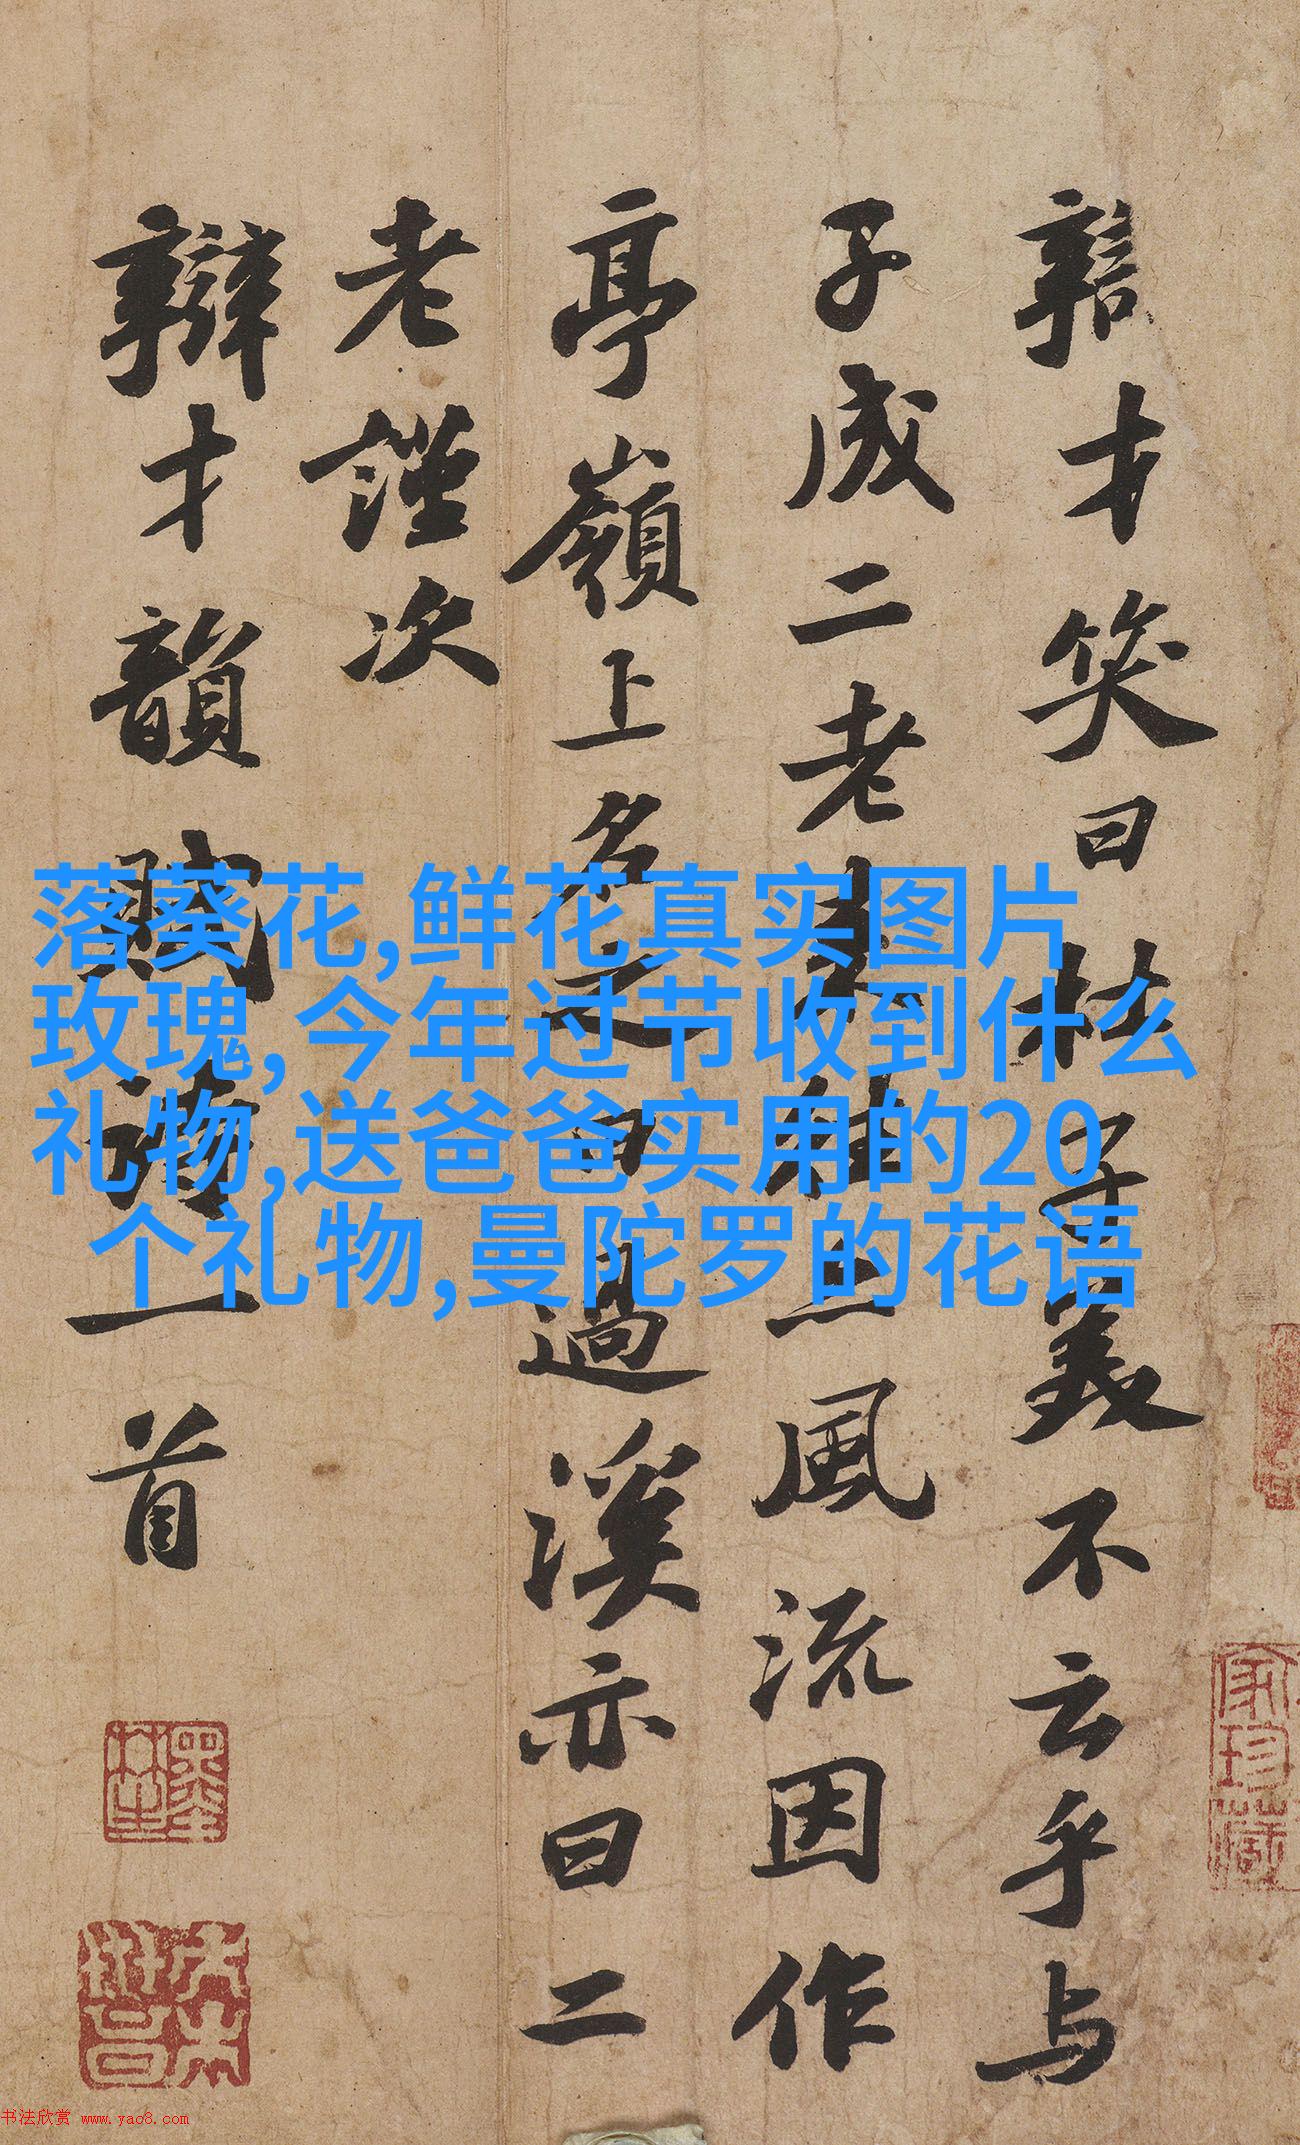 辯才笑曰杜子美不云乎与
子成二老来往亦風流因作
亭嶺上名之曰過溪亦曰二
老謹次
辯才韻賦詩一首
落葵花,鲜花真实图片
玫瑰,今年过节收到什么
礼物,送爸爸实用的20
个礼物,曼陀罗的花语
家珍藏
书法欣赏 www.yac8.com